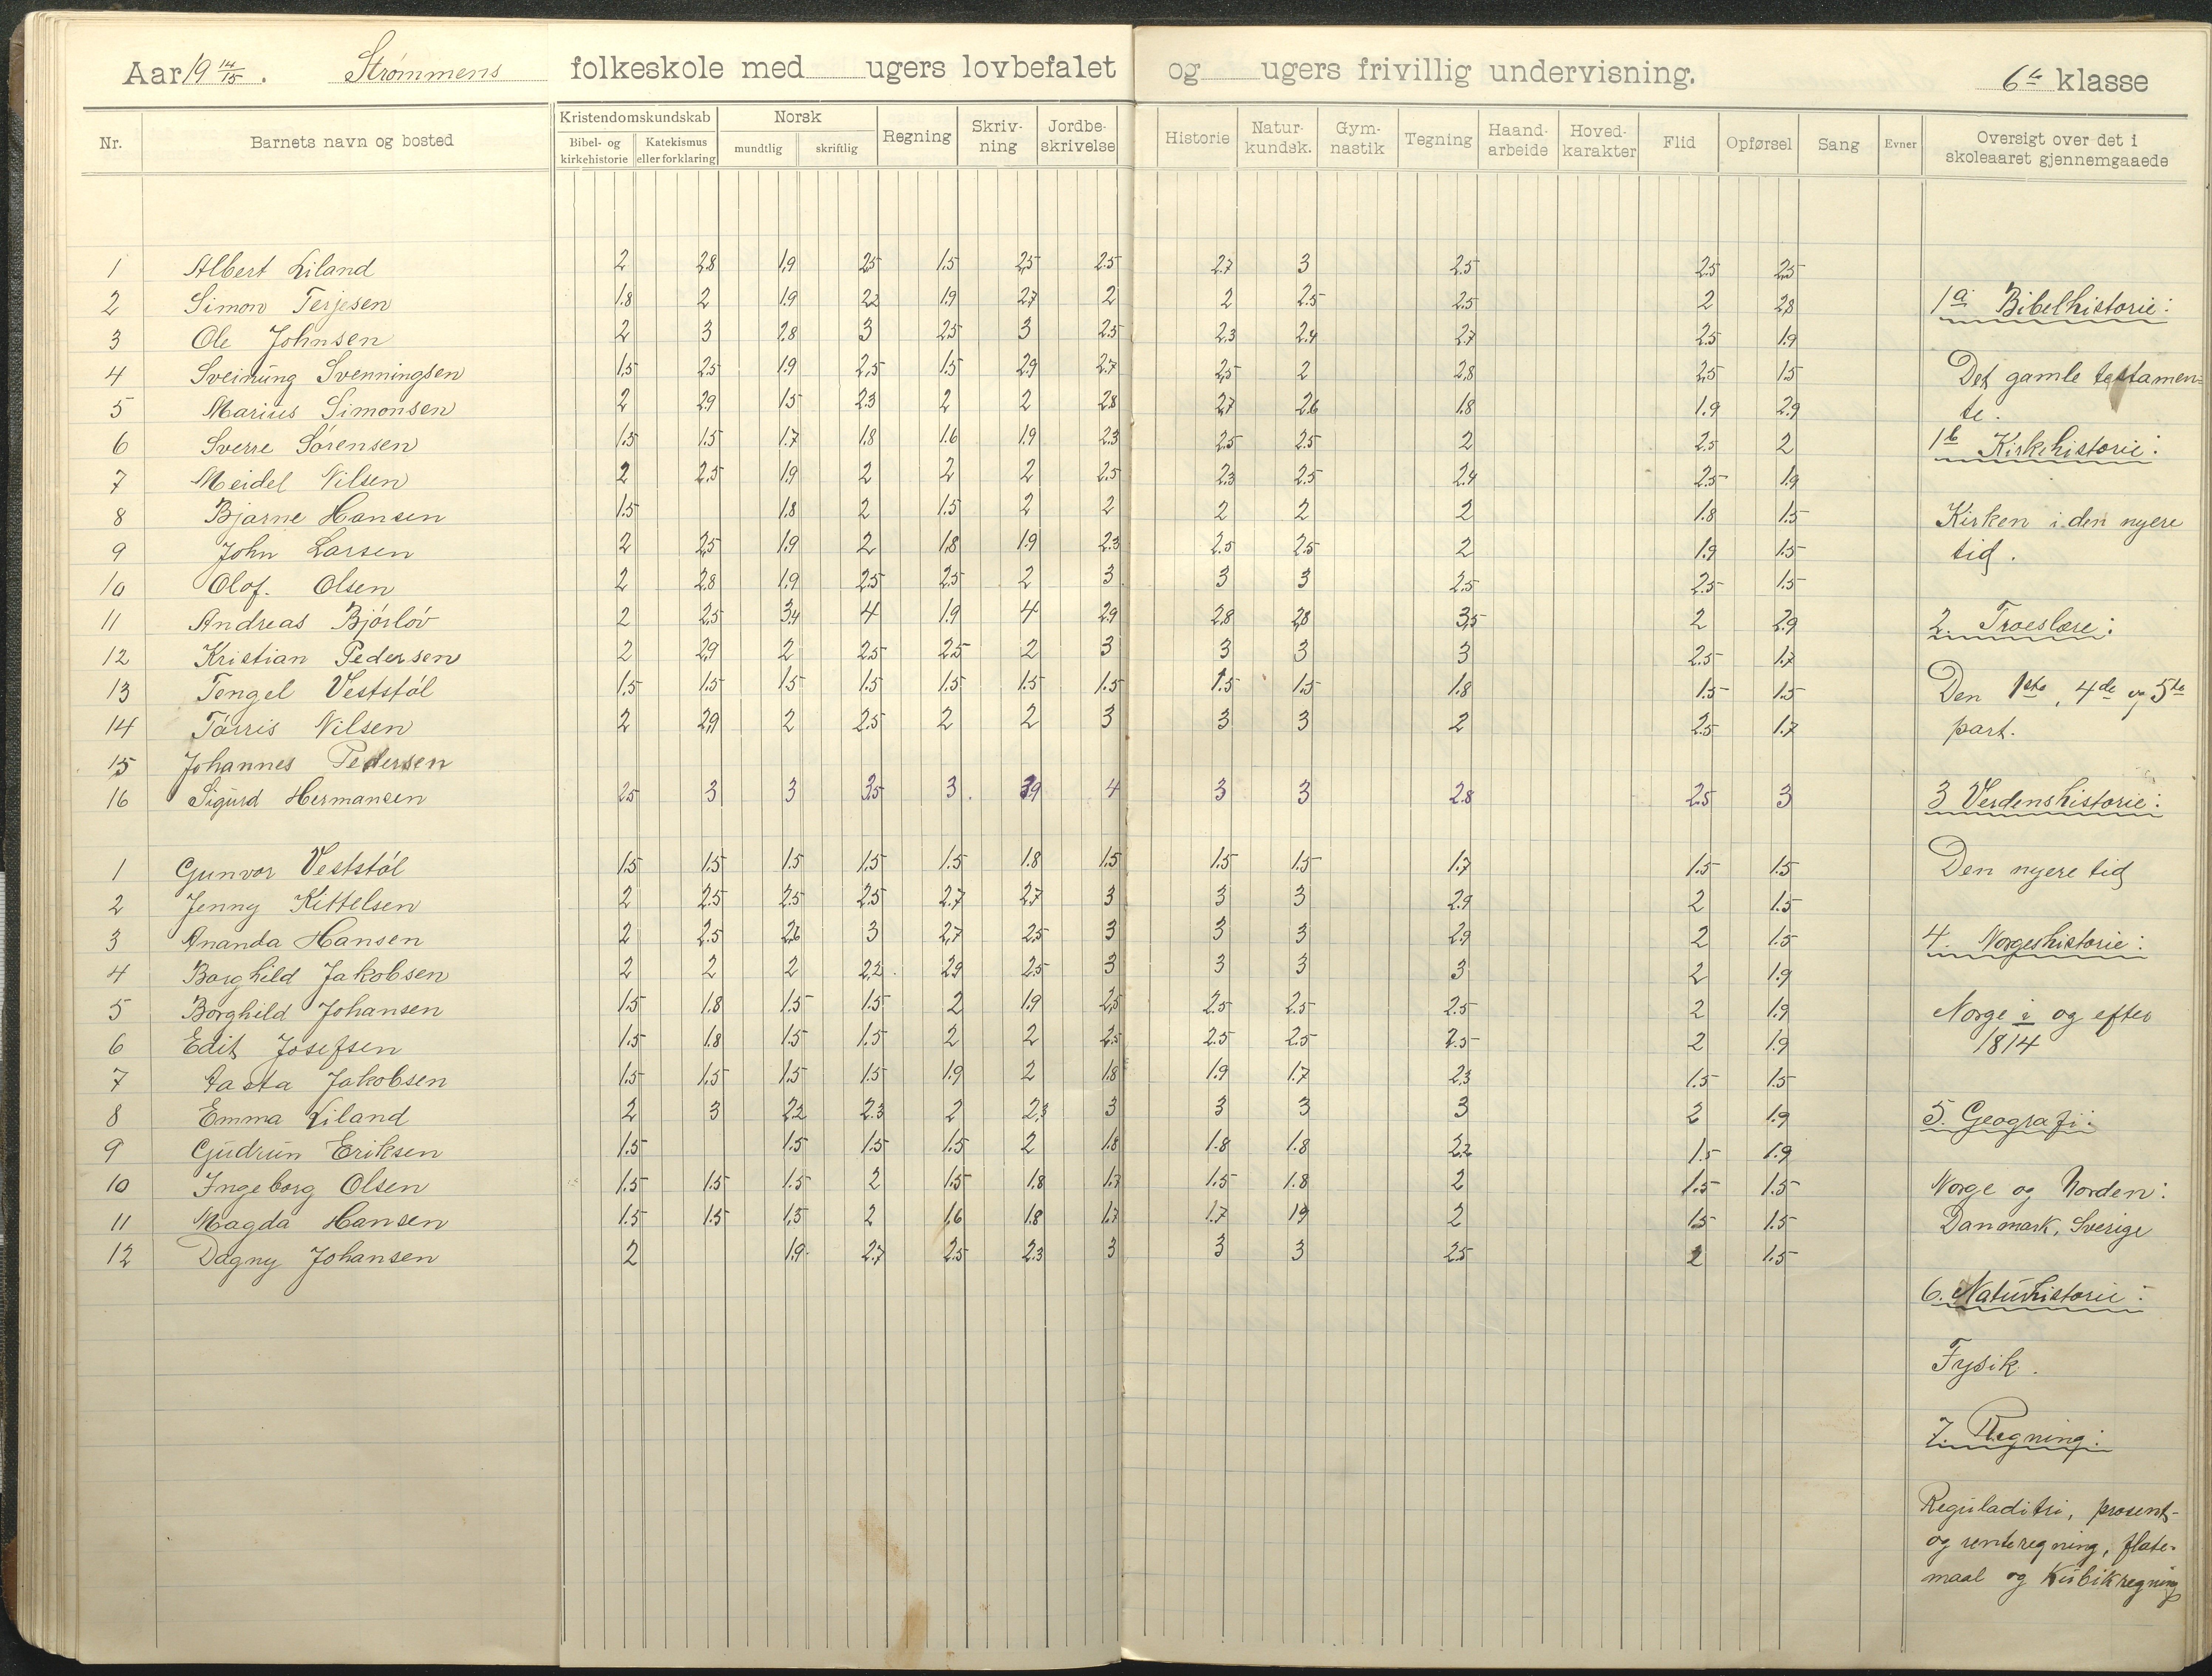 Aar 19 14/15. Strømmens folkeskole med ugers lovbefalet og ugers frivillig undervisning. 6te klasse
Nr. Barnets navn og bosted Kristendomskundskab Bibel- og kirkehistorie Katekismus eller forklaring Norsk mundtlig skriftlig Regning Skriv-ning Jordbe-skrivelse Historie Natur-kundsk. Gym-nastik Tegning Haand-arbeide Hoved-karakter Flid Opførsel Sang Evner Oversigt over det i skoleaaret gjennemgaaede
1 Albert Liland 2 2.8 1.9 2.5 1.5 2.5 2.5 2.7 3 2.5 2.5 2.5
2 Simon Terjesen 1.8 2 1.9 2.2 1.9 2.7 2 2 2.5 2.5 2 2.8
3 Ole Johnsen 2 3 2.8 3 2.5 3 2.5 2.3 2.4 2.7 2.5 1.9
4 Sveinung Svenningsen 1.5 2.5 1.9 2.5 1.5 2.9 2.7 2.5 2 2.8 2.5 1.5
5 Marius Simonsen 2 2.9 1.5 2.3 2 2 2.8 2.7 2.6 1.8 1.9 2.9
6 Sverre Sørensen 1.5 1.5 1.7 1.8 1.6 1.9 2.3 2.5 2.5 2 2.5 2
7 Meidel Nilsen 2 2.5 1.9 2 2 2 2.5 2.3 2.5 2.4 2.5 1.9
8 Bjarne Hansen 1.5 1.8 2 1.5 2 2 2 2 2 1.8 1.5
9 John Larsen 2 2.5 1.9 2 1.8 1.9 2.3 2.5 2.5 2 1.9 1.5
10 Olof. Olsen 2 2.8 1.9 2.5 2.5 2 3 3 3 2.5 2.5 1.5
11 Andreas Bjórlóv 2 2.5 3.4 4 1.9 4 2.9 2.8 2.8 3.5 2 2.9
12 Kristian Pedersen 2 2.9 2 2.5 2.5 2 3 3 3 3 2.5 1.7
13 Tengel Veststól 1.5 1.5 1.5 1.5 1.5 1.5 1.5 1.5 1.5 1.8 1.5 1.5
14 Tørris Nilsen 2 2.9 2 2.5 2 2 3 3 3 2 2.5 1.7
15 Johannes Pedersen
16 Sigurd Hermansen 2.5 3 3 3.5 3. 3.9 4 3 3 2.8 2.5 3
1 Gunvor Veststól 1.5 1.5 1.5 1.5 1.5 1.8 1.5 1.5 1.5 1.7 1.5 1.5
2 Jenny Kittelsen 2 2.5 2.5 2.5 2.7 2.7 3 3 3 2.9 2 1.5
3 Ananda Hansen 2 2.5 2.6 3 2.7 2.5 3 3 3 2.9 2 1.5
4 Borghild Jakobsen 2 2 2 2.2 2.9 2.5 3 3 3 3 2 1.9
5 Borghild Johansen 1.5 1.8 1.5 1.5 2 1.9 2.5 2.5 2.5 2.5 2 1.9
6 Edit Josefsen 1.5 1.8 1.5 1.5 2 2 2.5 2.5 2.5 2.5 2 1.9
7 Aasta Jakobsen 1.5 1.5 1.5 1.5 1.9 2 1.8 1.9 1.7 2.3 1.5 1.5
8 Emma Liland 2 3 2.2 2.3 2 2.3 3 3 3 3 2 1.9
9 Gudrun Eriksen 1.5 1.5 1.5 1.5 2 1.8 1.8 1.8 2.2 1.5 1.9
10 Ingeborg Olsen 1.5 1.5 1.5 2 1.5 1.8 1.7 1.5 1.8 2 1.5 1.5
11 Magda Hansen 1.5 1.5 1.5 2 1.6 1.8 1.7 1.7 1.9 2 1.5 1.5
12 Dagny Johansen 2 1.9 2.7 2.5 2.3 3 3 3 2.5 2 1.5
1a Bibelhistorie:
Det gamle testamen=
te.
1b Kirkehistorie:
Kirken i den nyere
tid.
2. Troeslære:
Den 1ste, 4de og 5te
part.
3 Verdenshistorie:
Den nyere tid
4. Norgeshistorie:
Norge i og efter
1814
5. Geografi:
Norge og Norden:
Danmark, Sverige
6. Naturhistorie:
Fysik.
7. Regning:
Reguladitri, prosent-
og renteregning, flate-
maal og Kubikregning